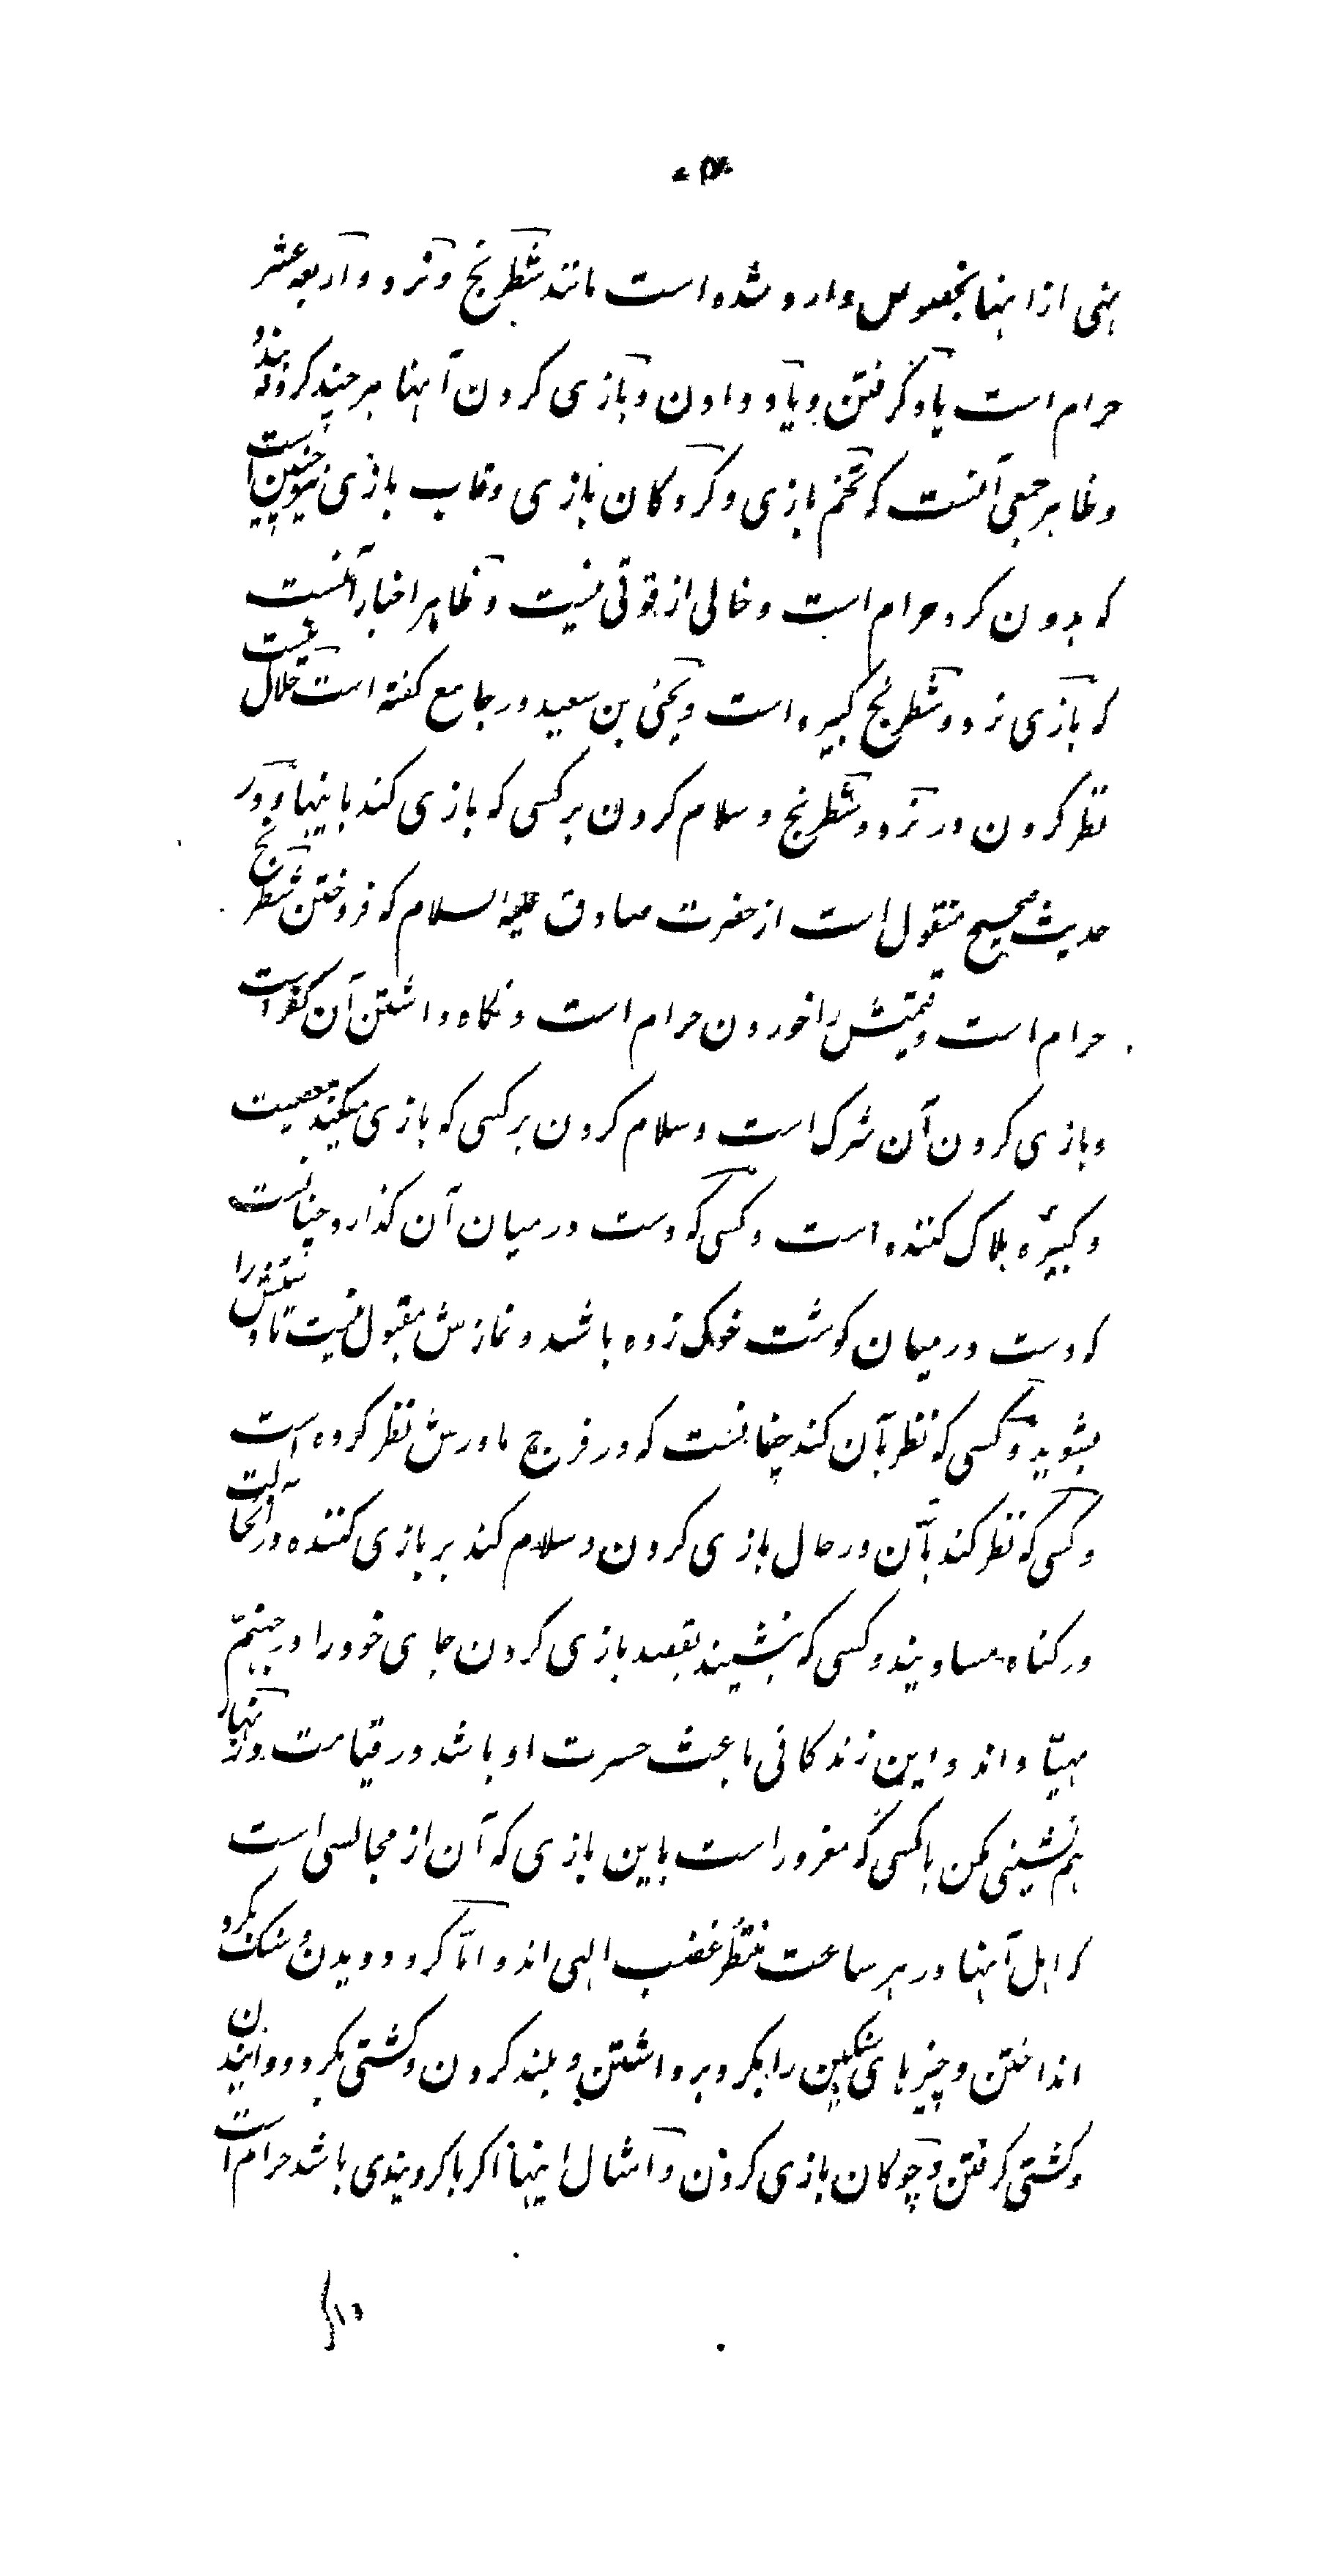 نهی از اینها بخصوص وارد شده است مانند شطرنج و نرد و اربعه عشر
حرام است یاد گرفتن و یاد دادن و بازی کردن آنها هرچند گرو نبندند
و ظاهر جمعی آنست که تخم بازی و گردکان بازی و قاب بازی نیز چنین است
که بدون گرو حرام است و خالی از قوتی نیست و ظاهر اخبار آنست
که بازی نرد و شطرنج کبیره است و یحیی بن سعید در جامع گفته است حلال نیست
نظر کردن در نرد و شطرنج و سلام کردن بر کسی که بازی کند باینها و در
حدیث صحیح منقول است از حضرت صادق علیه السلام که فروختن شطرنج
حرام است و قیمتش را خوردن حرام است و نگاه داشتن آن کفر است
و بازی کردن آن شرک است و سلام کردن بر کسی که بازی میکند معصیت
و کبیرهٔ هلاک کننده است و کسی که دست در میان آن گذارد چنانست
که دست در میان گوشت خوک زده باشد و نمازش مقبول نیست تا دستش را
بشوید و کسی که نظر بآن کند چنانست که در فرج مادرش نظر کرده است
و کسی که نظر کند بآن در حال بازی کردن و سلام کند بر بازی کننده در آنحالت
در گناه مساویند و کسی که بنشیند بقصد بازی کردن جای خود را در جهنم
مهیّا داند و این زندگانی باعث حسرت او باشد در قیامت و زنهار
هم نشینی مکن با کسی که مغرور است باین بازی که آن از مجالسی است
که اهل آنها در هر ساعت منتظر غضب الهی اند و امّا گرو دویدن و سنگ بگرو
انداختن و چیزهای سنگین را بگرو برداشتن و بلند کردن و کشتی بگرو دوانیدن
و کشتی گرفتن و چوگان بازی کردن و امثال اینها اگر با گروبندی باشد حرام است